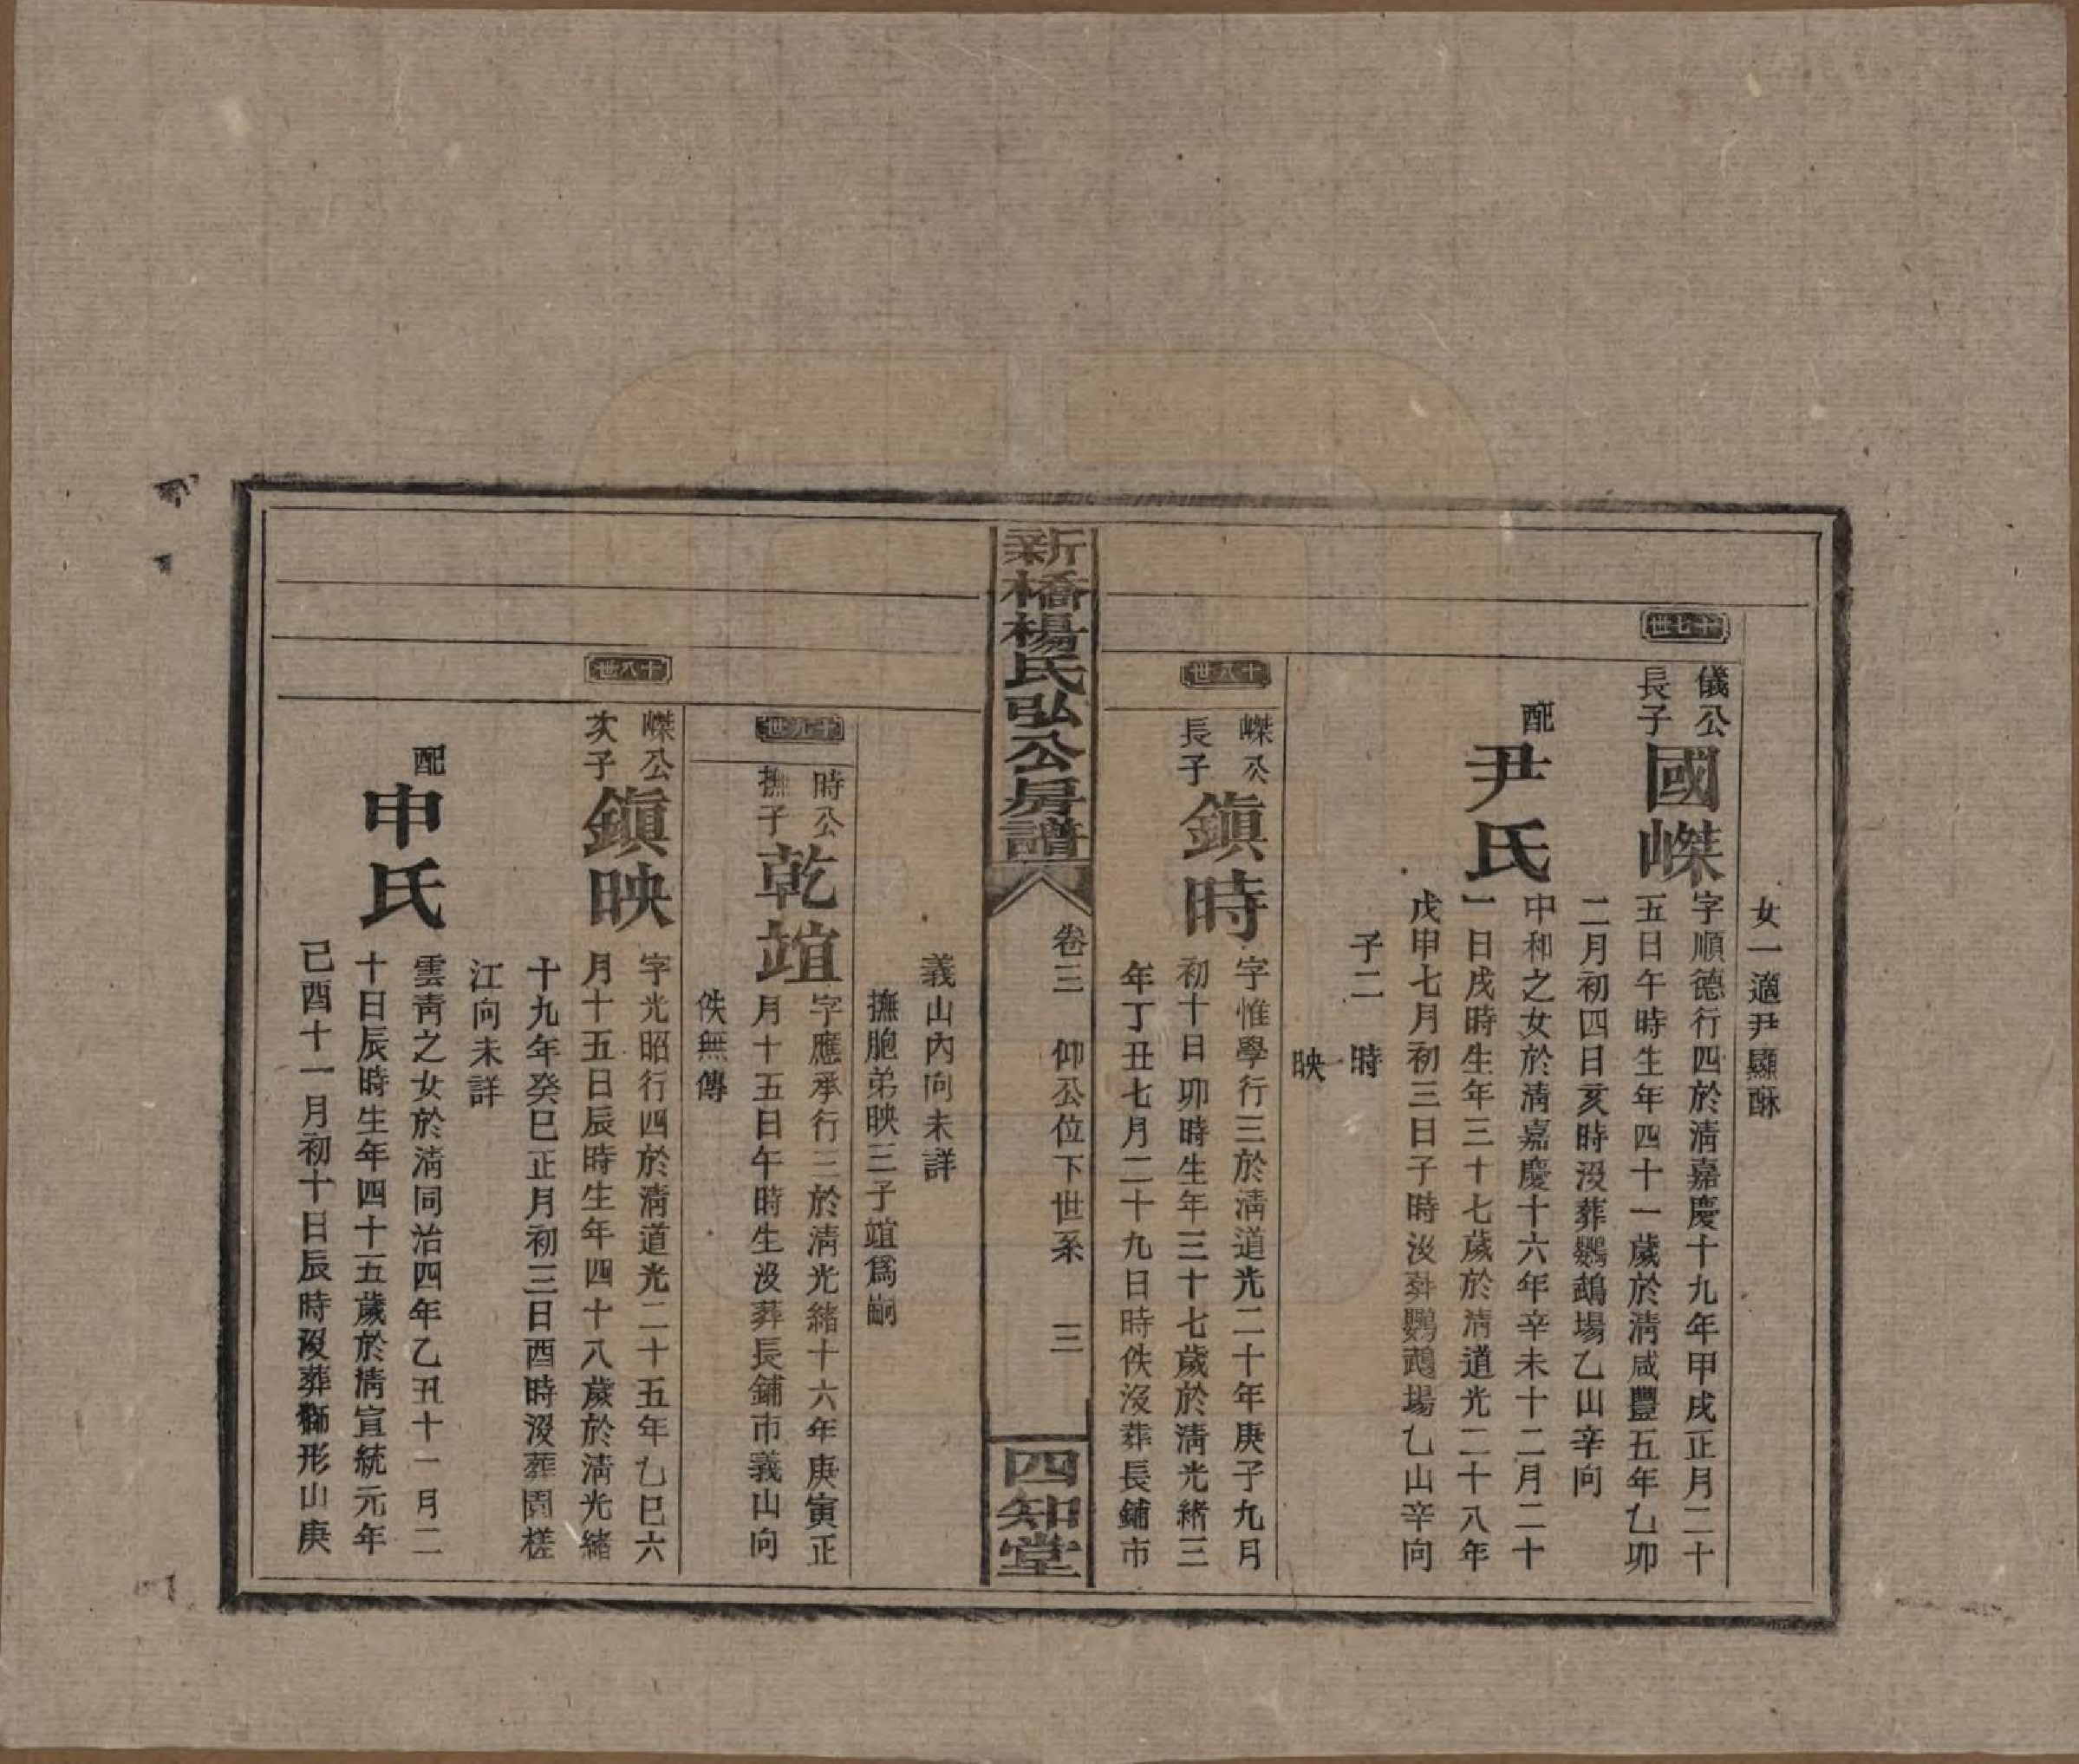 女一適尹顯酥
十七世
儀公長子
國嶫
字順德行四於淸嘉慶十九年甲戌正月二十
五日午時生年四十一歲於淸咸豐五年乙卯
二月初四日亥時沒葬鸚鵡場乙山辛向
配
尹氏
中和之女於淸嘉慶十六年辛未十二月二十
一日戌時生年三十七歲於淸道光二十八年
戊申七月初三日子時沒葬鸚鵡場乙山辛向
子二 時
映
十八世
嶫公長子
鎭時
字惟學行三於淸道光二十年庚子九月
初十日卯時生年三十七歲於淸光緒三
年丁丑七月二十九日時佚沒葬長鋪市
新橋楊氏弘公房譜
卷三 仰公位下世系 三
四知堂
義山內向未詳
撫胞弟映三子誼爲嗣
十九世
時公撫子
乾誼
字應承行三於淸光緒十六年庚寅正
月十五日午時生沒葬長鋪市義山向
佚無傳
十八世
嶫公次子
鎭映
字光昭行四於淸道光二十五年乙巳六
月十五日辰時生年四十八歲於淸光緒
十九年癸巳正月初三日酉時沒葬園槎
江向未詳
配
申氏
雲靑之女於淸同治四年乙丑十一月二
十日辰時生年四十五歲於淸宣統元年
己酉十一月初十日辰時沒葬獅形山庚